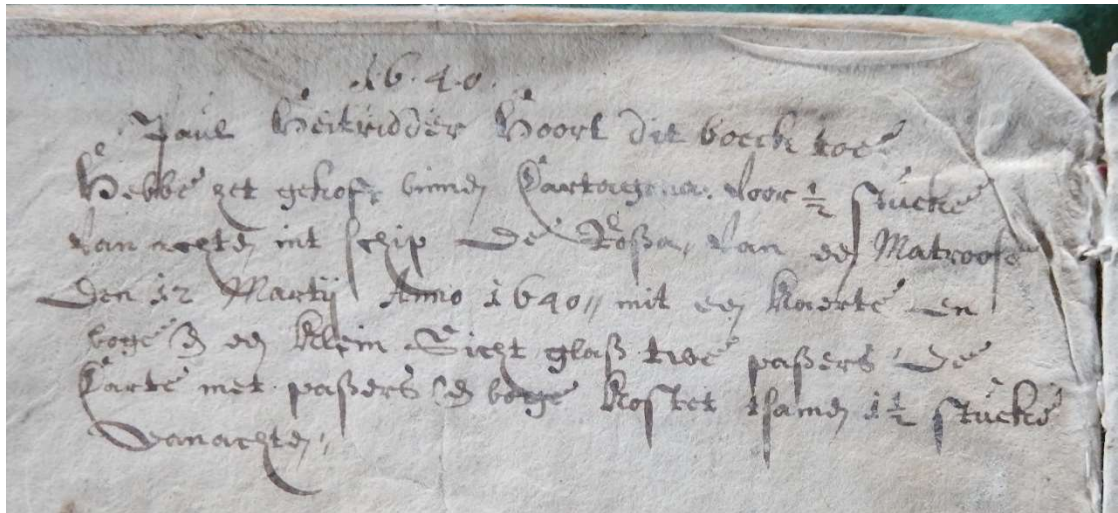 1640.
Paul Heitridder Hoort dit boeck toe
Hebbe zet gekoft binnen Cartagena. voor ½ stucke
van achten int schip de Roßa, van een Matroose
den 12 Martij Anno 1640 // mit een Kaerte en
boge een Klein Sicht glaß twe paßers de
Carte met paßers boge Kostet tsamen 1½ stucke
vanachten,